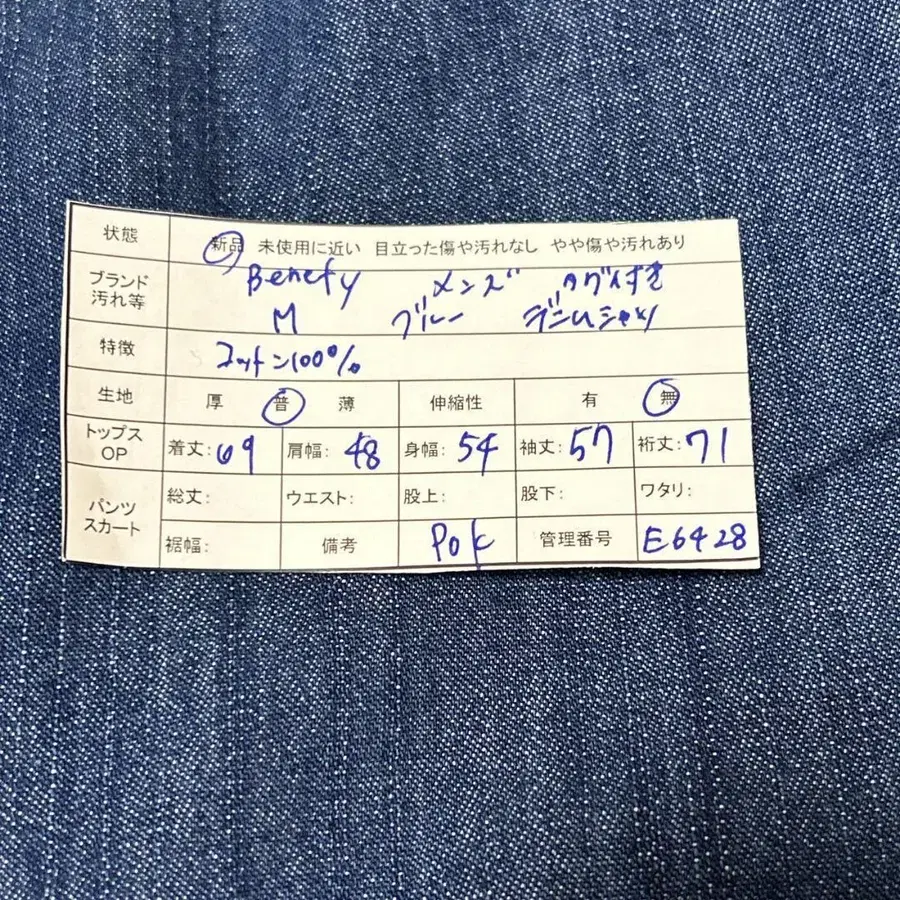 状態 新品 未使用に近い 目立った傷や汚れなし やや傷や汚れあり
ブランド 汚れ等 Benefy メンズ タグ付き
M ブルー デニムシャツ
特徴 コットン100%
生地 厚 普 薄 伸縮性 有 無
トップス OP 着丈:69 肩幅:48 身幅:54 袖丈:57 裄丈:71
パンツ スカート 総丈: ウエスト: 股上: 股下: ワタリ:
裾幅: 備考 Pok 管理番号 E6428